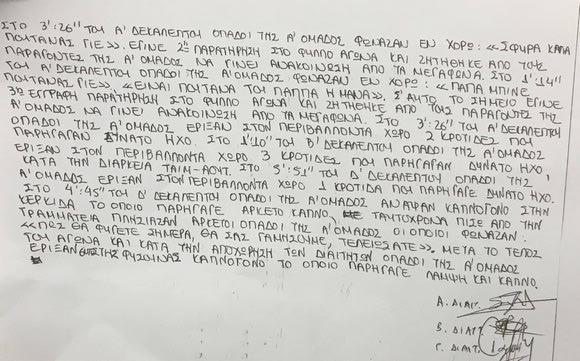 ΣΤΟ 3':26'' ΤΟΥ Α' ΔΕΚΑΛΕΠΤΟΥ ΟΠΑΔΟΙ ΤΗΣ Α' ΟΜΑΔΟΣ ΦΩΝΑΖΑΝ ΕΝ ΧΟΡΩ: «ΣΦΥΡΑ ΚΑΠΑ
ΠΟΥΤΑΝΑΣ ΓΙΕ». ΕΓΙΝΕ 2η ΠΑΡΑΤΗΡΗΣΗ ΣΤΟ ΦΥΛΛΟ ΑΓΩΝΑ ΚΑΙ ΖΗΤΗΘΗΚΕ ΑΠΟ ΤΟΥΣ
ΠΑΡΑΓΟΝΤΕΣ ΤΗΣ Α' ΟΜΑΔΟΣ ΝΑ ΓΙΝΕΙ ΑΝΑΚΟΙΝΩΣΗ ΑΠΟ ΤΑ ΜΕΓΑΦΩΝΑ. ΣΤΟ 1':14''
ΤΟΥ Α' ΔΕΚΑΛΕΠΤΟΥ ΟΠΑΔΟΙ ΤΗΣ Α' ΟΜΑΔΟΣ ΦΩΝΑΖΑΝ ΕΝ ΧΟΡΩ: «ΠΑΠΑ ΜΠΙΝΕ
ΠΟΥΤΑΝΑΣ ΓΙΕ», «ΕΙΝΑΙ ΠΟΥΤΑΝΑ ΤΟΥ ΠΑΠΠΑ Η ΜΑΝΑ». Σ' ΑΥΤΟ ΤΟ ΣΗΜΕΙΟ ΕΓΙΝΕ
3η ΕΓΓΡΑΦΗ ΠΑΡΑΤΗΡΗΣΗ ΣΤΟ ΦΥΛΛΟ ΑΓΩΝΑ ΚΑΙ ΖΗΤΗΘΗΚΕ ΑΠΟ ΤΟΥΣ ΠΑΡΑΓΟΝΤΕΣ ΤΗΣ
Α' ΟΜΑΔΟΣ ΝΑ ΓΙΝΕΙ ΑΝΑΚΟΙΝΩΣΗ ΑΠΟ ΤΑ ΜΕΓΑΦΩΝΑ. ΣΤΟ 3':26'' ΤΟΥ Α' ΔΕΚΑΛΕΠΤΟΥ
ΟΠΑΔΟΙ ΤΗΣ Α' ΟΜΑΔΟΣ ΕΡΙΞΑΝ ΣΤΟΝ ΠΕΡΙΒΑΛΛΟΝΤΑ ΧΩΡΟ 2 ΚΡΟΤΙΔΕΣ ΠΟΥ
ΠΑΡΗΓΑΓΑΝ ΔΥΝΑΤΟ ΗΧΟ. ΣΤΟ 1':10'' ΤΟΥ Β' ΔΕΚΑΛΕΠΤΟΥ ΟΠΑΔΟΙ ΤΗΣ Α' ΟΜΑΔΟΣ
ΕΡΙΞΑΝ ΣΤΟΝ ΠΕΡΙΒΑΛΛΟΝΤΑ ΧΩΡΟ 3 ΚΡΟΤΙΔΕΣ ΠΟΥ ΠΑΡΗΓΑΓΑΝ ΔΥΝΑΤΟ ΗΧΟ
ΚΑΤΑ ΤΗΝ ΔΙΑΡΚΕΙΑ ΤΑΙΜ-ΑΟΥΤ. ΣΤΟ 5':51'' ΤΟΥ Δ' ΔΕΚΑΛΕΠΤΟΥ ΟΠΑΔΟΙ ΤΗΣ
Α' ΟΜΑΔΟΣ ΕΡΙΞΑΝ ΣΤΟΝ ΠΕΡΙΒΑΛΛΟΝΤΑ ΧΩΡΟ 1 ΚΡΟΤΙΔΑ ΠΟΥ ΠΑΡΗΓΑΓΕ ΔΥΝΑΤΟ ΗΧΟ.
ΣΤΟ 4':45'' ΤΟΥ Δ' ΔΕΚΑΛΕΠΤΟΥ ΟΠΑΔΟΙ ΤΗΣ Α' ΟΜΑΔΟΣ ΑΝΑΨΑΝ ΚΑΠΝΟΓΟΝΟ ΣΤΗΝ
ΚΕΡΚΙΔΑ ΤΟ ΟΠΟΙΟ ΠΑΡΗΓΑΓΕ ΑΡΚΕΤΟ ΚΑΠΝΟ, ΤΑΥΤΟΧΡΟΝΑ ΠΙΣΩ ΑΠΟ ΤΗΝ
ΓΡΑΜΜΑΤΕΙΑ ΠΛΗΣΙΑΖΑΝ ΑΡΚΕΤΟΙ ΟΠΑΔΟΙ ΤΗΣ Α' ΟΜΑΔΟΣ ΟΙ ΟΠΟΙΟΙ ΦΩΝΑΖΑΝ:
«ΠΩΣ ΘΑ ΦΥΓΕΤΕ ΣΗΜΕΡΑ, ΘΑ ΣΑΣ ΓΑΜΗΣΟΥΜΕ, ΤΕΛΕΙΩΣΑΤΕ» ΜΕΤΑ ΤΟ ΤΕΛΟΣ
ΤΟΥ ΑΓΩΝΑ ΚΑΙ ΚΑΤΑ ΤΗΝ ΑΠΟΧΩΡΗΣΗ ΤΩΝ ΔΙΑΙΤΗΤΩΝ ΟΠΑΔΟΙ ΤΗΣ Α' ΟΜΑΔΟΣ
ΕΡΙΞΑΝ ΕΝΤΟΣ ΤΗΣ ΦΥΣΟΥΝΑΣ ΚΑΠΝΟΓΟΝΟ ΤΟ ΟΠΟΙΟ ΠΑΡΗΓΑΓΕ ΛΑΜΨΗ ΚΑΙ ΚΑΠΝΟ.
Α. ΔΙΑΙΤ.
Β. ΔΙΑΙΤ.
Γ. ΔΙΑΙΤ.